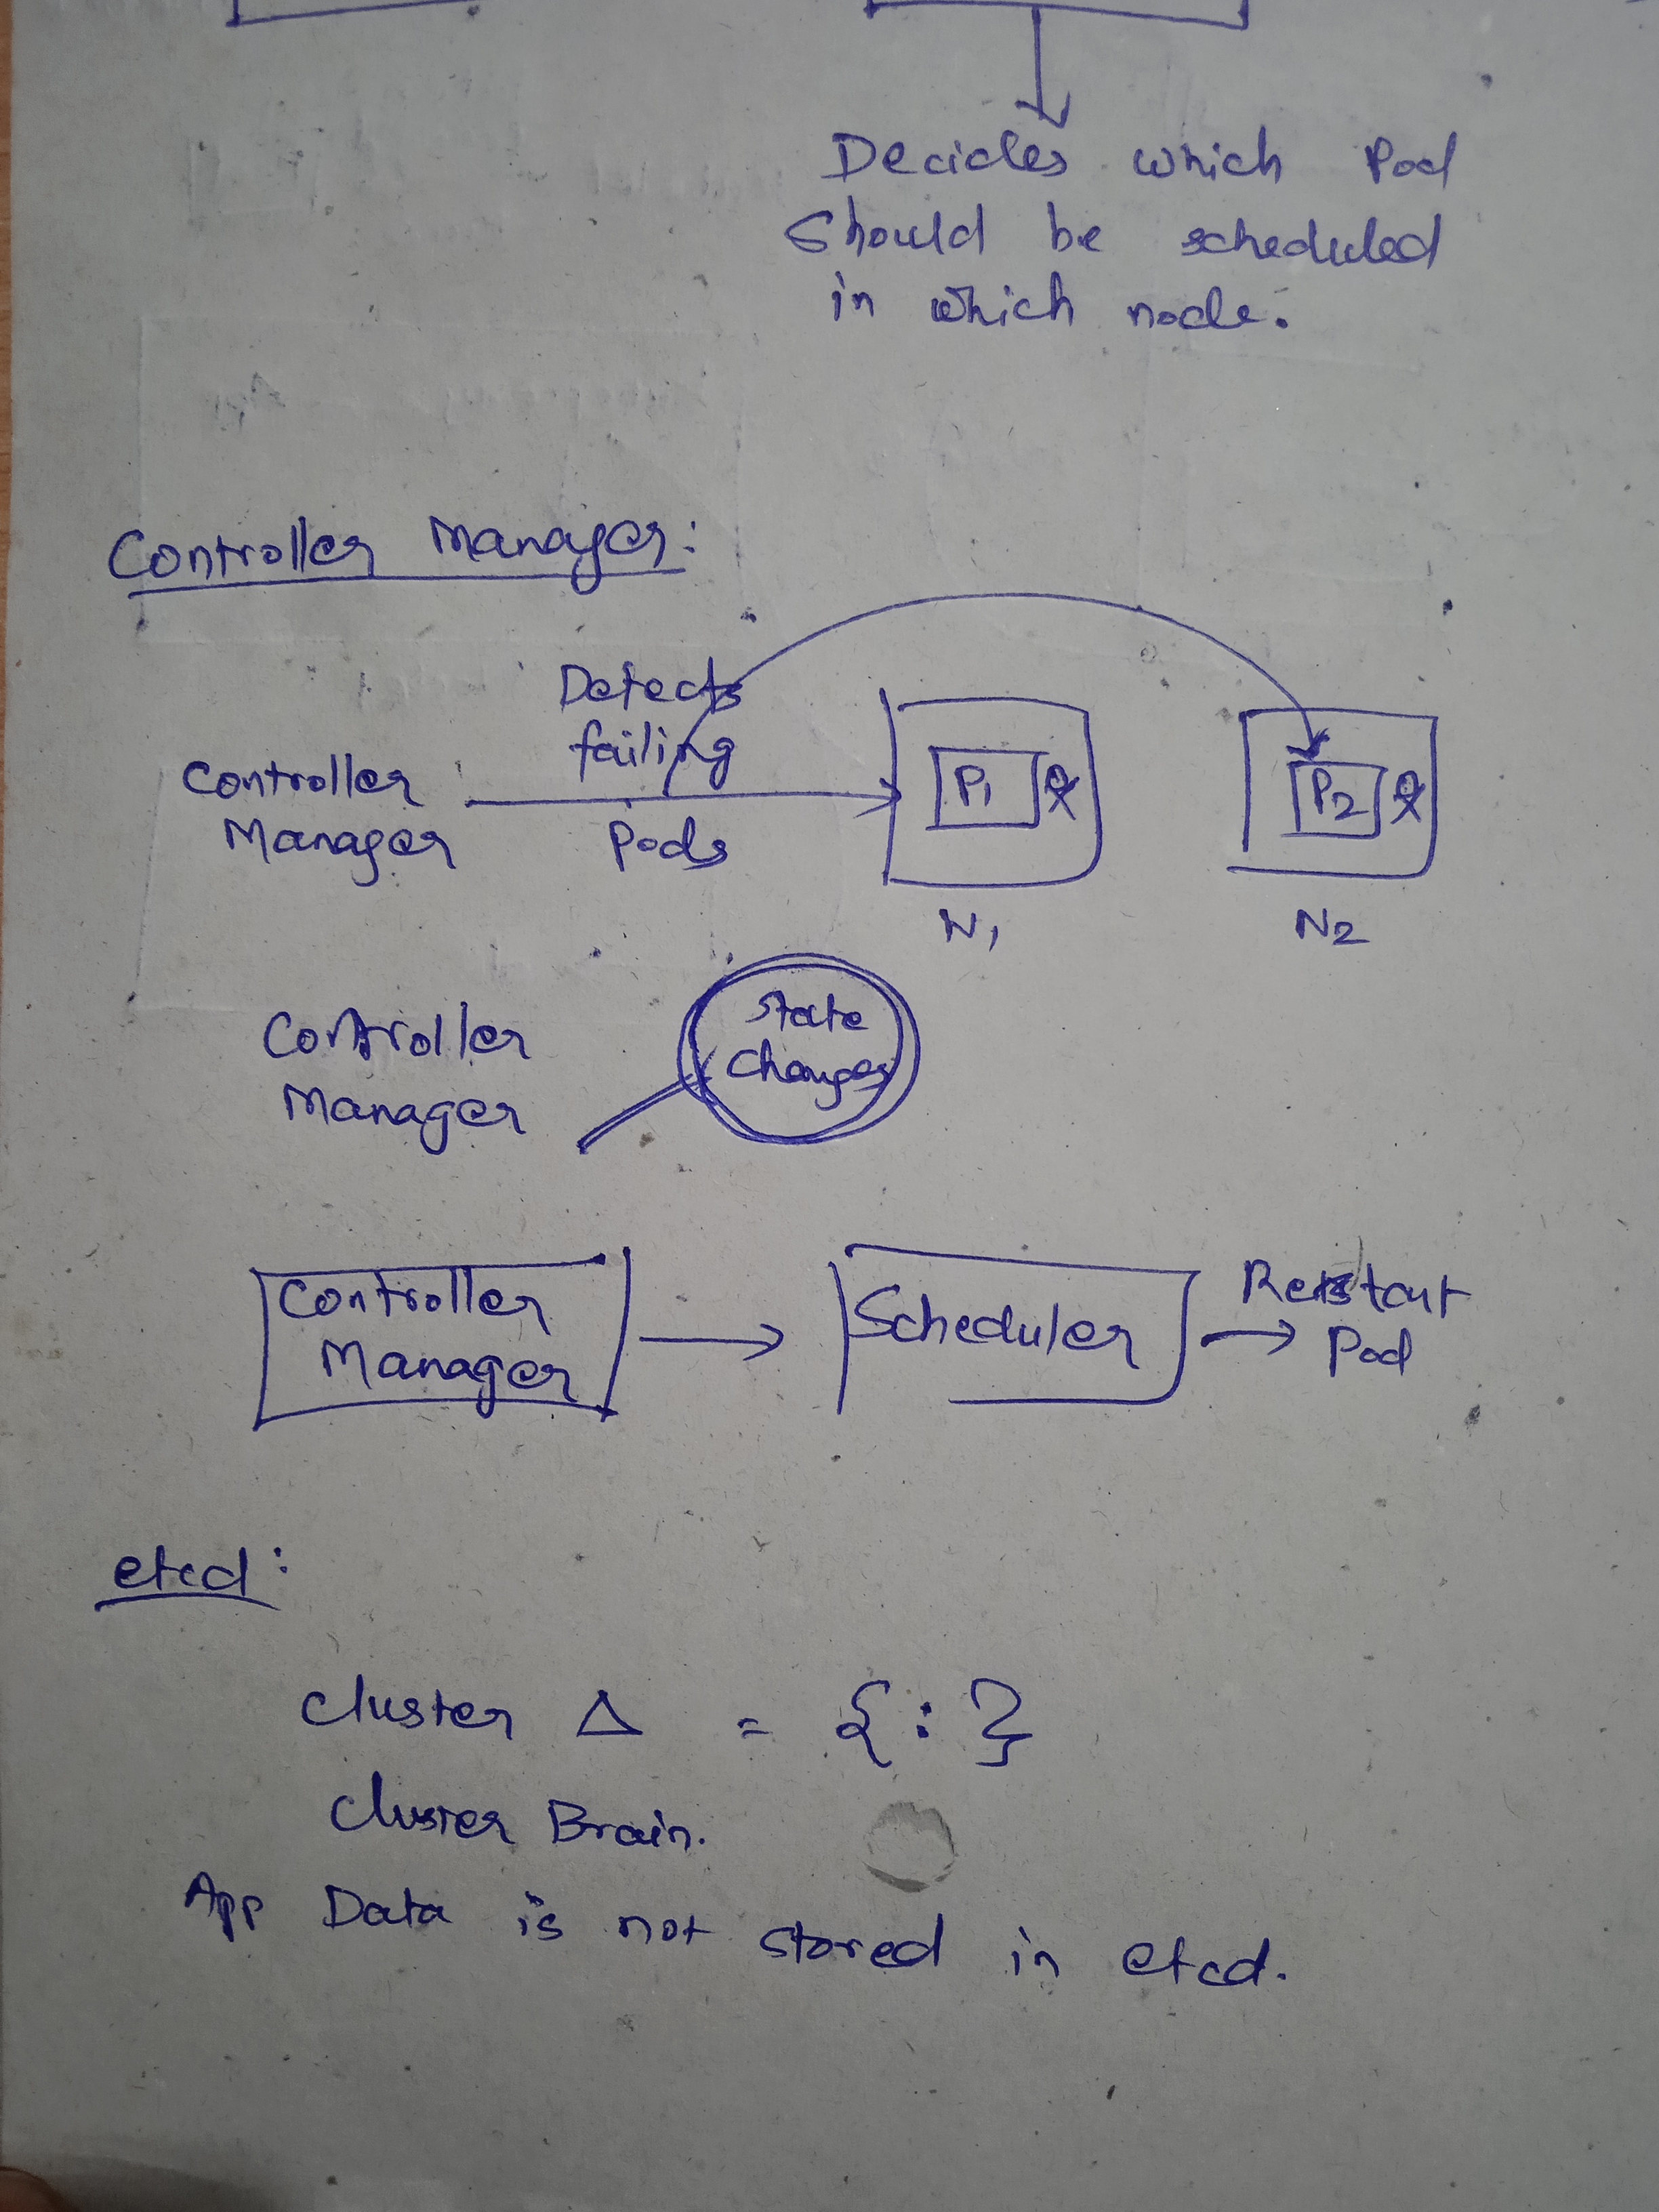 Decides which Pod
Should be scheduled
in which node.
Controller Manager:
Detects
failing
Controller
Manager
Pods
P1
P2
N1
N2
Controller
Manager
State
Changes
Controller
Manager
Scheduler
Restart
Pod
etcd:
Cluster Δ = { : }
Cluster Brain.
App Data is not stored in etcd.